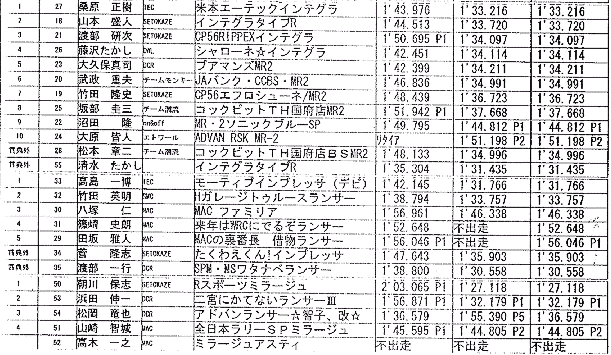 1 27 桑原 正樹 IEC 米本エーテックインテグラ 1'43.976 1'33.216 1'33.216
2 18 山本 盛人 SETOKAZE インテグラタイプR 1'44.513 1'33.720 1'33.720
3 21 渡部 研次 SETOKAZE CP56RIPPEXインテグラ 1'50.695 P1 1'34.097 1'34.097
4 26 藤沢たかし シャローネ☆インテグラ 1'42.451 1'34.114 1'34.114
5 23 大久保真司 DCR ブアマンズMR2 1'42.399 1'34.211 1'34.211
6 20 武政 重夫 チームモンキー JAバンク・CCBS・MR2 1'46.836 1'34.991 1'34.991
7 19 竹田 隆史 SETOKAZE CP56エフロシューネ/MR2 1'48.439 1'36.723 1'36.723
8 25 坂部 圭三 チーム潮流 コックピットTH国府店MR2 1'51.942 P1 1'37.668 1'37.668
9 22 沼田 隆 on&off MR-2ソニックブルーSP 1'49.795 1'44.812 P1 1'44.812 P1
10 24 大原 皆人 エトワール ADVAN RSK MR-2 リタイア 1'51.198 P2 1'51.198 P2
賞典外 28 松本 章二 チーム潮流 コックピットTH国府店BSMR2 1'48.133 1'34.996 1'34.996
賞典外 55 清水 たかし インテグラタイプR 1'35.304 1'31.435 1'31.435
1 33 高島 一博 IEC モーティブインプレッサ(デビ) 1'42.145 1'31.766 1'31.766
2 32 竹田 英明 SMC Hガレージトゥルースランサー 1'38.794 1'33.757 1'33.757
3 30 八塚 仁 MAC MAC ファミリア 1'56.961 1'46.338 1'46.338
4 31 篠崎 史朗 MAC 来年はWRCにでるぞランサー 1'52.648 不出走 1'52.648
5 29 田坂 雅人 MAC MACの裏番長 借物ランサー 1'56.046 P1 不出走 1'56.046 P1
賞典外 34 菅 隆志 SETOKAZE たくわえくん!インプレッサ 1'47.643 1'35.903 1'35.903
賞典外 35 渡部 一行 DCR SPM・MSワタナベランサー 1'38.800 1'30.558 1'30.558
1 50 朝川 保志 SETOKAZE Rスポーツミラージュ 2'03.065 P1 1'27.118 1'27.118
2 53 浜田 伸一 DCR 二宮にかてないランサーⅢ 1'56.871 P1 1'32.179 P1 1'32.179 P1
3 54 松岡 竜也 DCR アドバンランサー☆智子、改☆ 1'36.579 1'55.390 P5 1'36.579
4 51 山崎 智城 MAC 全日本ラリーSPミラージュ 1'45.595 P1 1'44.805 P2 1'44.805 P2
52 高木 一之 MAC ミラージュアスティ 不出走 不出走 不出走